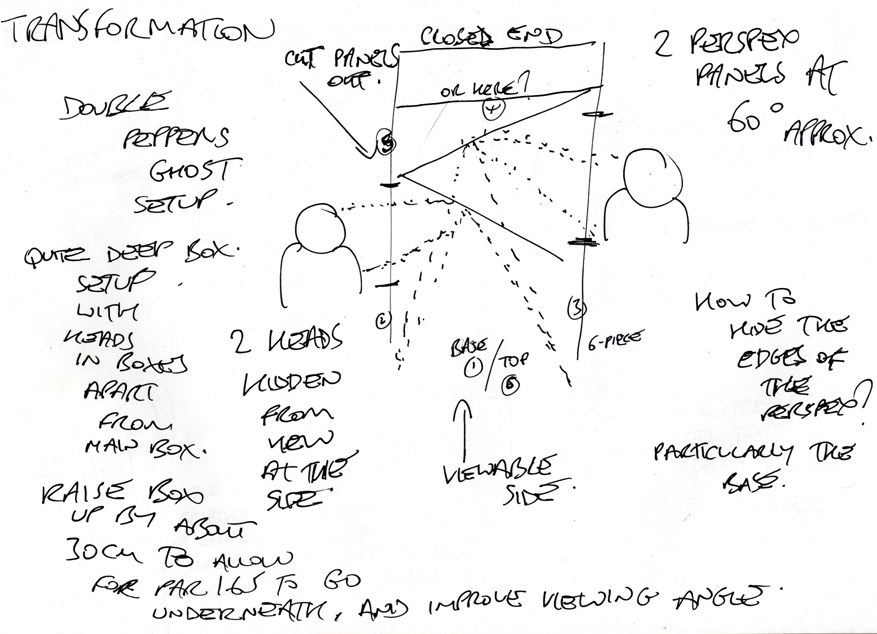 TRANSFORMATION
CLOSED END
CUT PANELS
OUT.
OR HERE?
4
5
2 PERSPEX
PANELS AT
60° APPROX.
DOUBLE
PEPPERS
GHOST
SETUP.
QUITE DEEP BOX.
SETUP
WITH
HEADS
IN BOXES
APART
FROM
MAIN BOX.
2 HEADS
HIDDEN
FROM
VIEW
AT THE
SIDE
2
3
6-PIECE
BASE
1 / TOP
6
VIEWABLE
SIDE.
HOW TO
HIDE THE
EDGES OF
THE
PERSPEX?
PARTICULARLY THE
BASE.
RAISE BOX
UP BY ABOUT
30CM TO ALLOW
FOR PAR 16S TO GO
UNDERNEATH, AND IMPROVE VIEWING ANGLE.